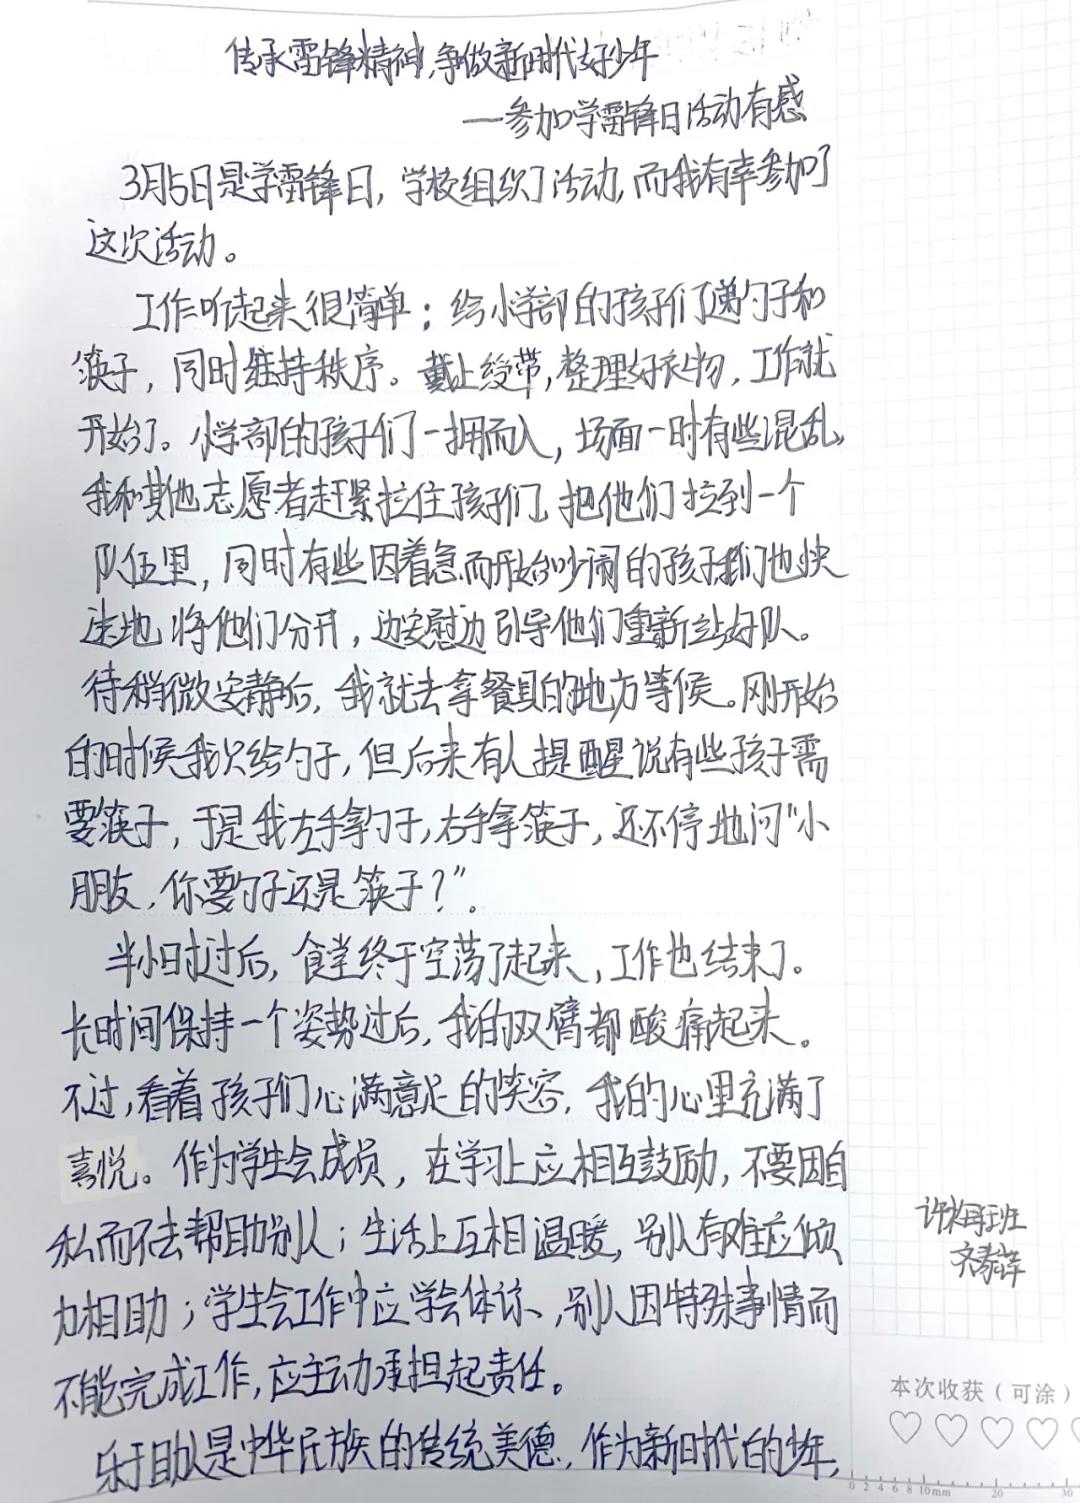 传承雷锋精神，争做新时代好少年
—参加学雷锋日活动有感
3月5日是学雷锋日，学校组织了活动，而我有幸参加了
这次活动。
工作听起来很简单：给小学部的孩子们递勺子和
筷子，同时维持秩序。戴上绶带，整理好衣物，工作就
开始了。小学部的孩子们一拥而入，场面一时有些混乱，
我和其他志愿者赶紧拉住孩子们，把他们拉到一个
队伍里，同时有些因着急而开始吵闹的孩子我们也快
速地将他们分开，边安慰边引导他们重新站好队。
待稍微安静后，我就去拿餐具的地方等候。刚开始
的时候我只给勺子，但后来有人提醒说有些孩子需
要筷子，于是我左手拿勺子，右手拿筷子，还不停地问“小
朋友，你要勺子还是筷子？”。
半小时过后，食堂终于空荡了起来，工作也结束了。
长时间保持一个姿势过后，我的双臂都酸痛起来。
不过，看着孩子们心满意足的笑容，我的心里充满了
喜悦。作为学生会成员，在学习上应相互鼓励，不要因自
私而不去帮助别人；生活上互相温暖，别人有难应倾
力相助；学生会工作中应学会体谅、别人因特殊事情而
不能完成工作，应主动承担起责任。
乐于助人是中华民族的传统美德，作为新时代的少年，
班
齐
本次收获（可涂）
0 2 4 6 8 10mm 20 30